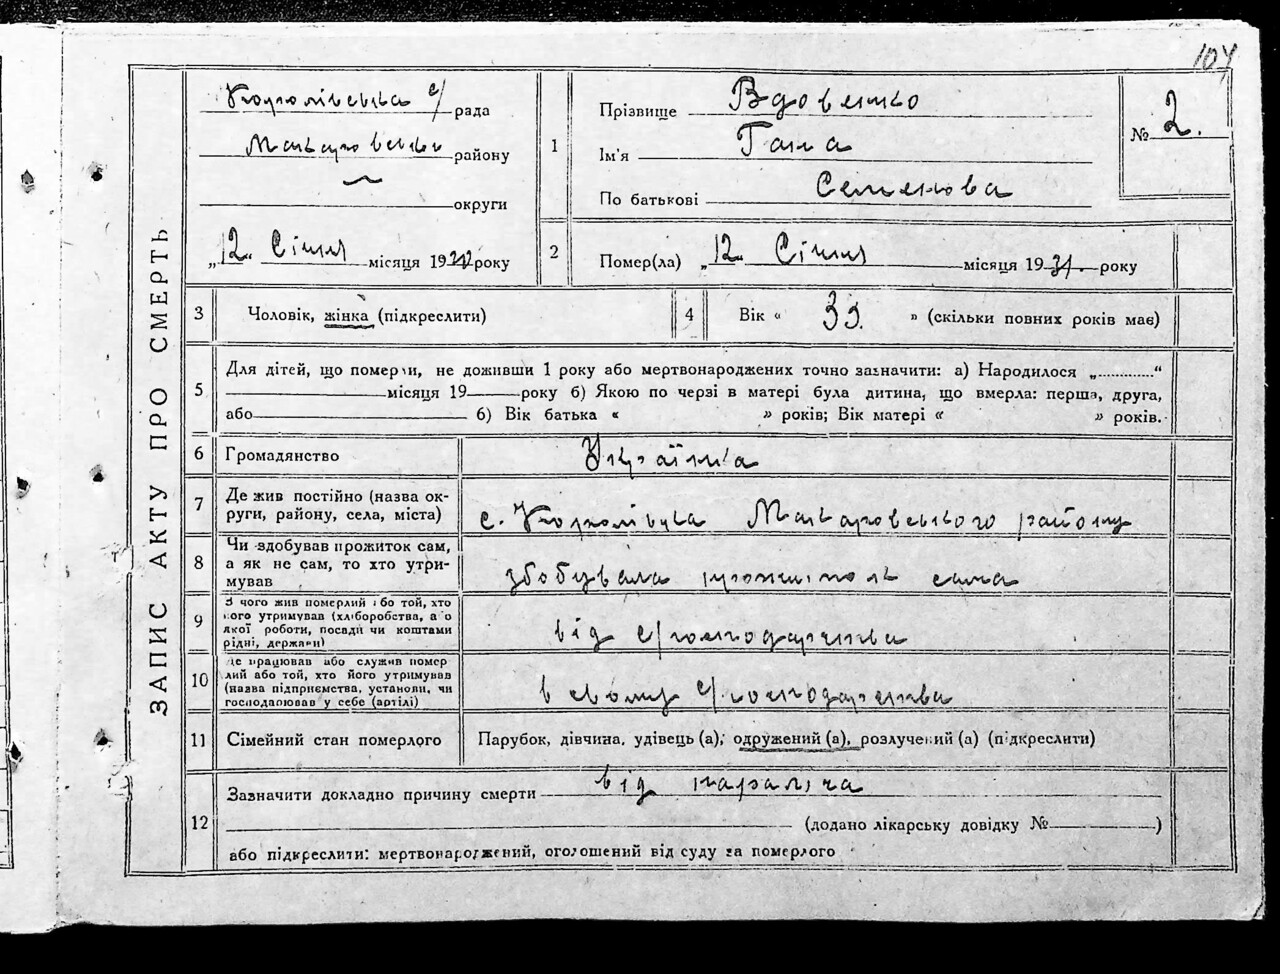 107
ЗАПИС АКТУ ПРО СМЕРТЬ
Королівська с/рада
Макаровськи району
округи
„12“ Січня місяця 19 року
1
Прізвище Вдовенко
Ім'я Гана
По батькові Семенова
№ 2.
2
Помер(ла) „12“ Січня місяця 1931. року
3 Чоловік, жінка (підкреслити)
4 Вік « » (скільки повних років має)
5
Для дітей, що померли, не доживши 1 року або мертвонароджених точно зазначити: а) Народилося „............“
місяця 19 року б) Якою по черзі в матері була дитина, що вмерла: перша, друга,
або 6) Вік батька « » років; Вік матері « » років.
6 Громадянство Українка
7 Де жив постійно (назва ок-
руги, району, села, міста) с. Королівка Макаровського району
8 Чи здобував прожиток сам,
а як не сам, то хто утри-
мував збобувала прожиток сама
9 З чого жив померлий або той, хто
його утримував (хліборобства, а о
якої роботи, посади чи коштами
рідні, держави) від с/господарства
10 Де працював або служив помер
лий або той, хто його утримував
(назва підприємства, установи, чи
господарював у себе (артілі) в свому с/господарства
11 Сімейний стан померлого Парубок, дівчина, удівець (а), одружений (а), розлучений (а) (підкреслити)
12
Зазначити докладно причину смерти від параліча
(додано лікарську довідку № )
або підкреслити: мертвонароджений, оголошений від суду за померлого